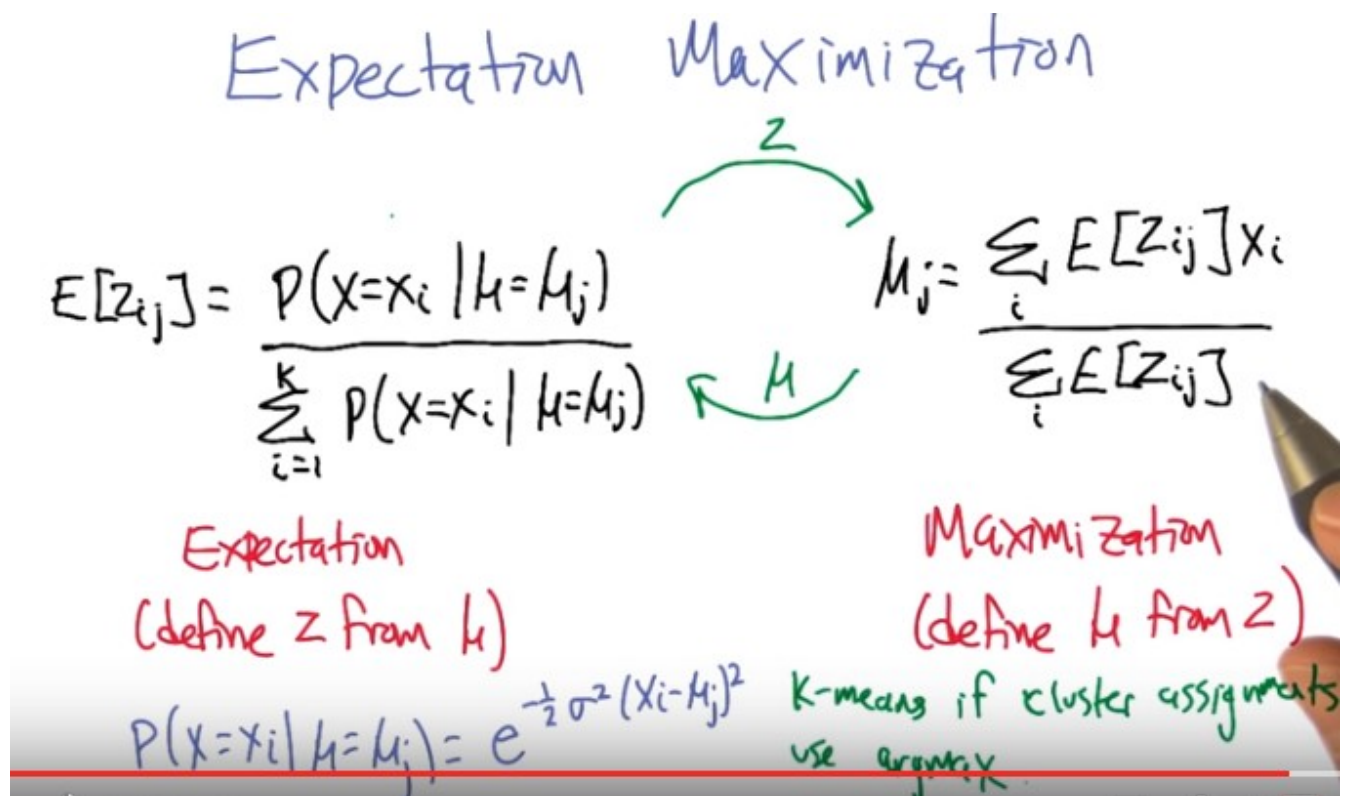 Expectation Maximization
z
E[Zij] = P(X=xi | μ=μj)
∑ i=1 k P(X=xi | μ=μj)
μj = ∑i E[Zij] xi
∑i E[Zij]
μ
Expectation
(define z from μ)
Maximization
(define μ from z)
P(X=xi | μ=μj) = e^-½ σ² (xi-μj)²
K-means if cluster assignments
use argmax